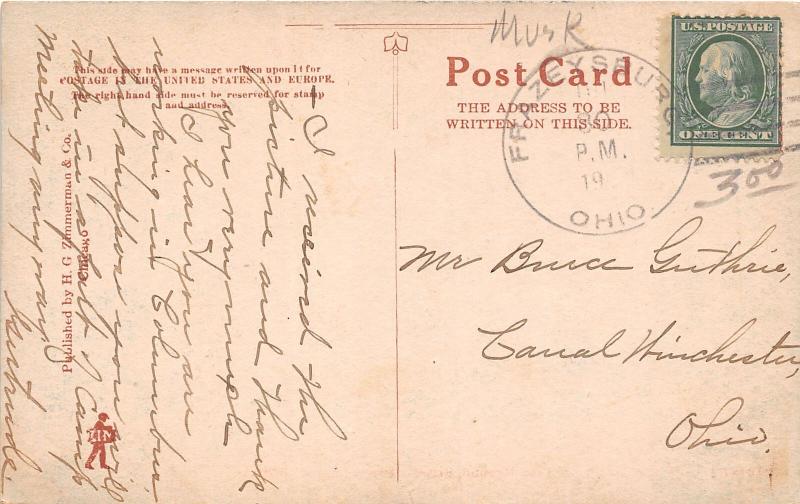 Musk
This side may have a message written upon it for
POSTAGE IN THE UNITED STATES AND EUROPE.
The right hand side must be reserved for stamp
and address.
Post Card
THE ADDRESS TO BE
WRITTEN ON THIS SIDE.
U.S. POSTAGE
ONE CENT
FRAZEYSBURG
P.M.
19
OHIO
3.00
Mr Bruce Guthrie,
Canal Winchester,
Ohio.
I received the
picture and thank
you very much
I hear you are
working in Columbus
but suppose you will
take in a part of Camp
Meeting any way
Gertrude.
Published by H. G. Zimmerman & Co.
Chicago
ZIM